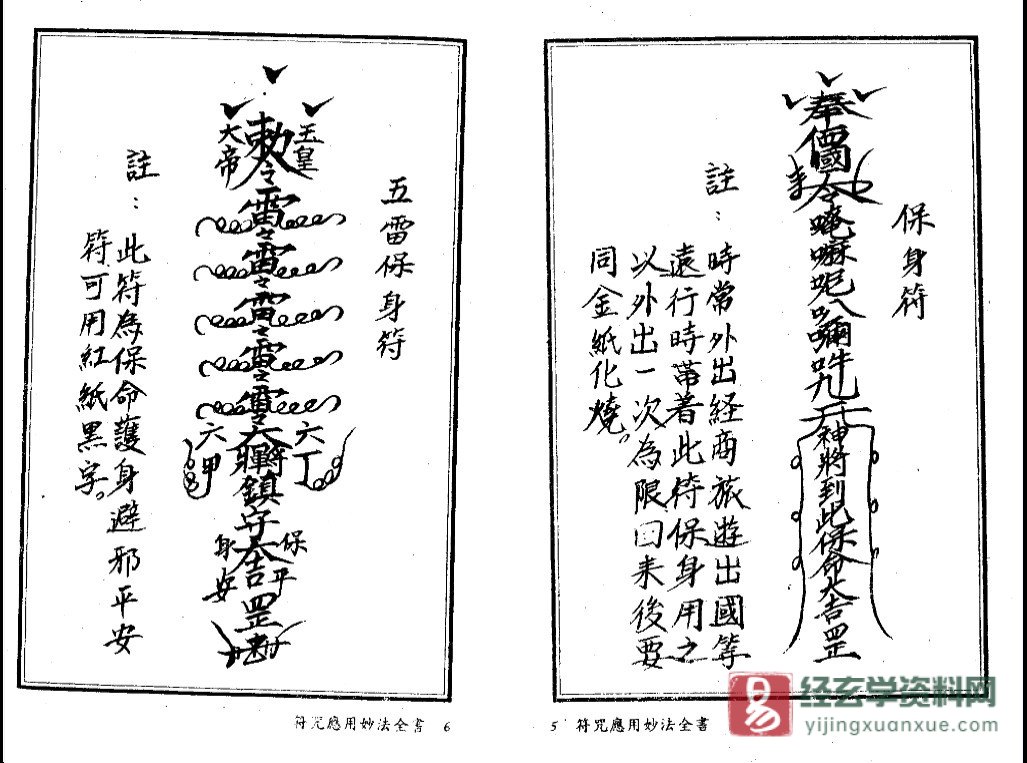 保身符
奉
國令唵嘛呢八嘛吽
神將到此保命大吉罡
註：
時常外出経商旅遊出國等
遠行時帶著此符保身用之
以外出一次為限回来後要
同金紙化燒。
5 符咒應用妙法全書
五雷保身符
玉皇
勅令雷令雷令雷令雷令雷令
大帝
六丁
六甲
大將鎮守大吉罡
保平
身安
註：
此符為保命護身避邪平安
符可用紅紙黑字。
符咒應用妙法全書 6
易
经玄学资料网
yijingxuanxue.com